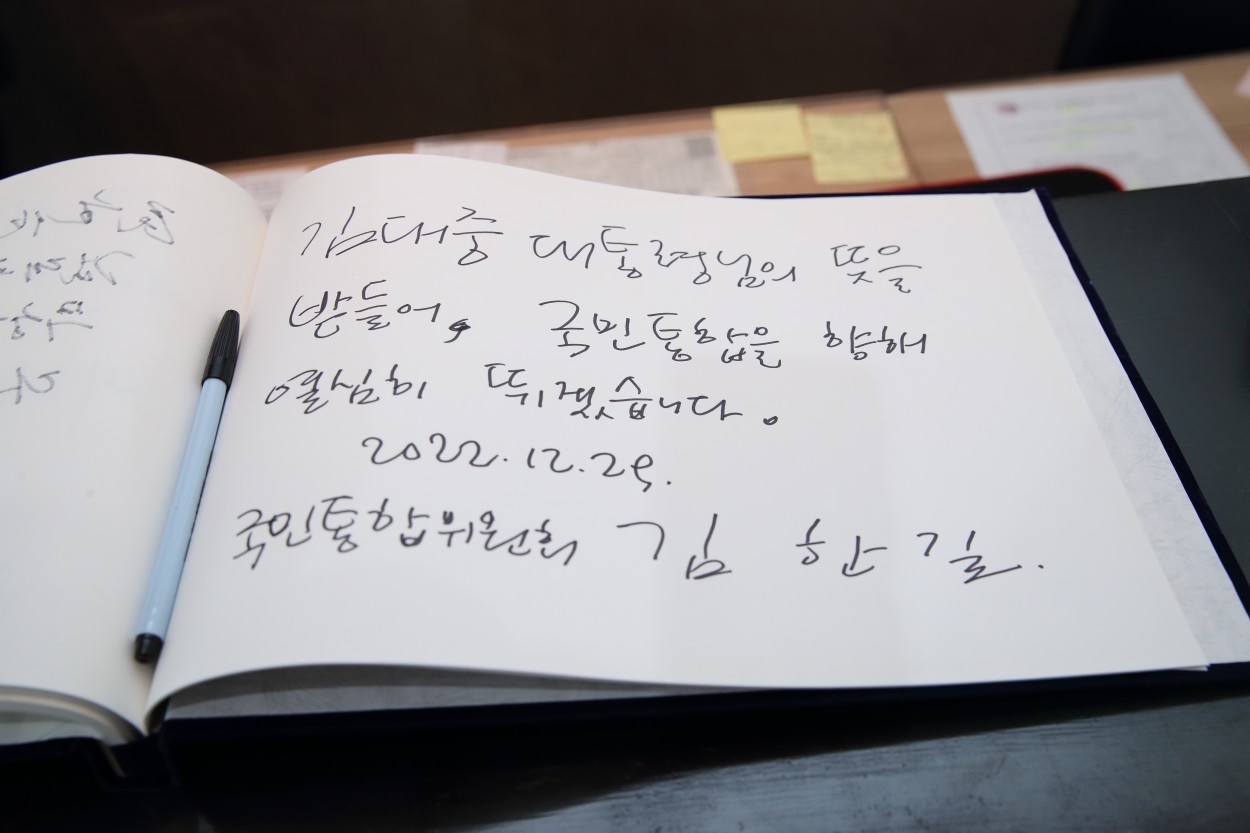 김대중 대통령님의 뜻을
받들어, 국민통합을 향해
열심히 뛰겠습니다.
2022.12.29.
국민통합위원회 김 한 길.